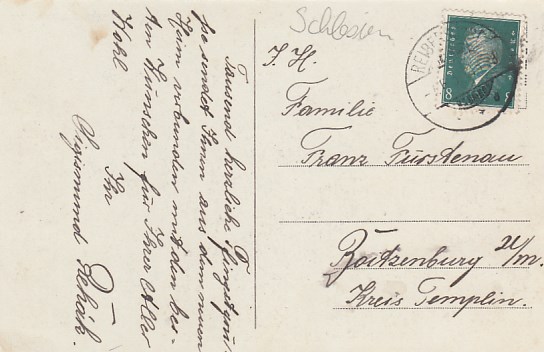 Schlesien
Tausend herrliche Pfingstgrü-
sse sendet Ihnen aus dem neuen
Heim verbunden mit den bes-
ten Wünschen für Ihrer Aller
Wohl
Ihr
Sigismund Rehák.
8
8
Familie
Franz Fürstenau
Boitzenburg u/m.
Kreis Templin.